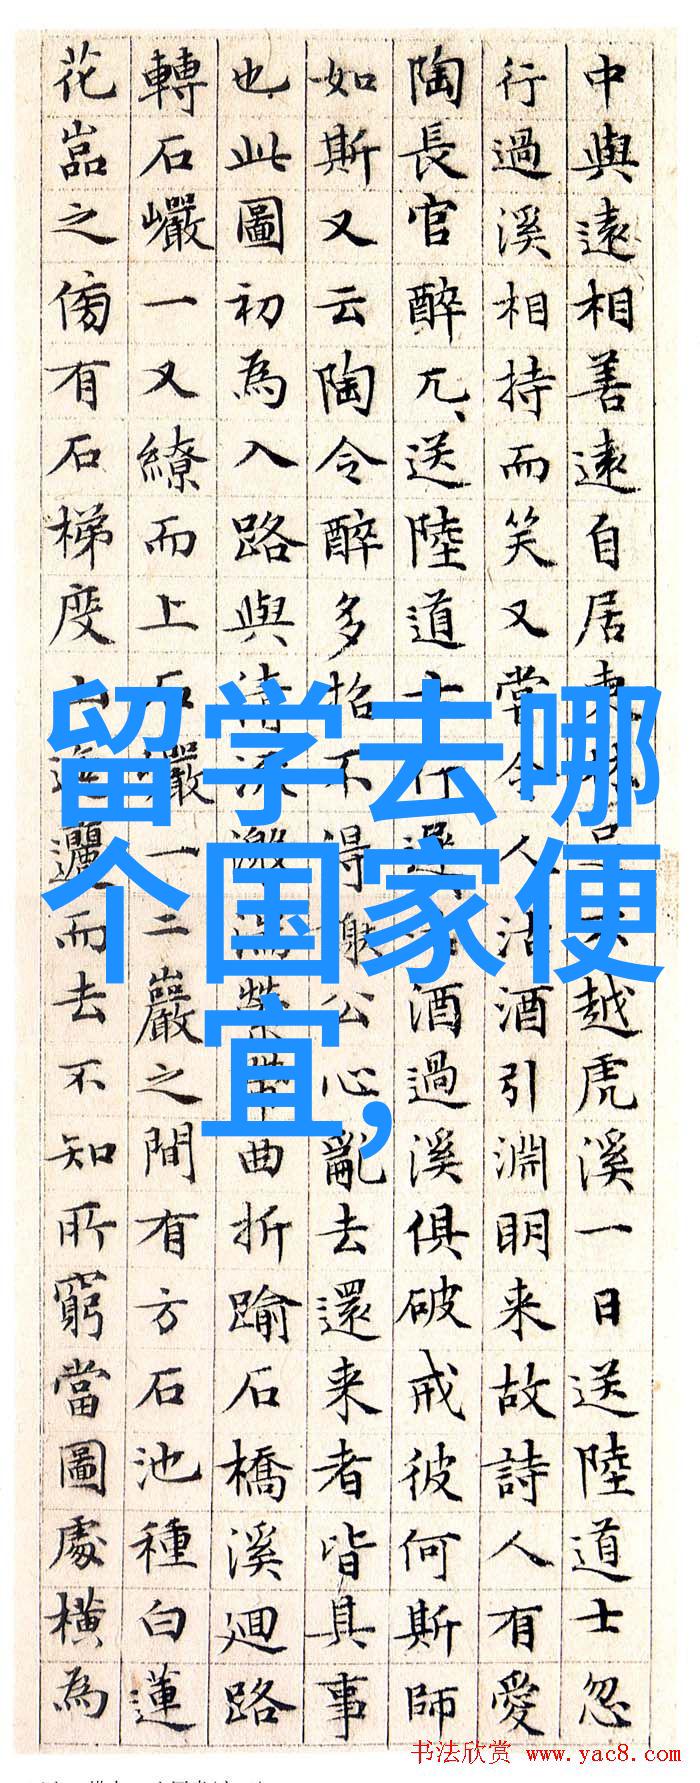 中與遠相善遠自居東越虎溪一日送陸道士忽
行過溪相持而笑又常令人沽酒引淵明来故詩人有愛
陶長官醉兀、送陸道士行遲、酒過溪俱破戒彼何斯師
如斯又云陶令醉多招不得謝公心亂去還来者皆其事
也此圖初為入路與清流激湍縈帶曲折踰石橋溪迴路
轉石巖一又繚而上石巖一二巖之間有方石池種白蓮
花嵓之傍有石梯度山迤邐而去不知所窮當圖處橫為
留学去哪
个国家便
宜,
书法欣赏 www.yac8.com